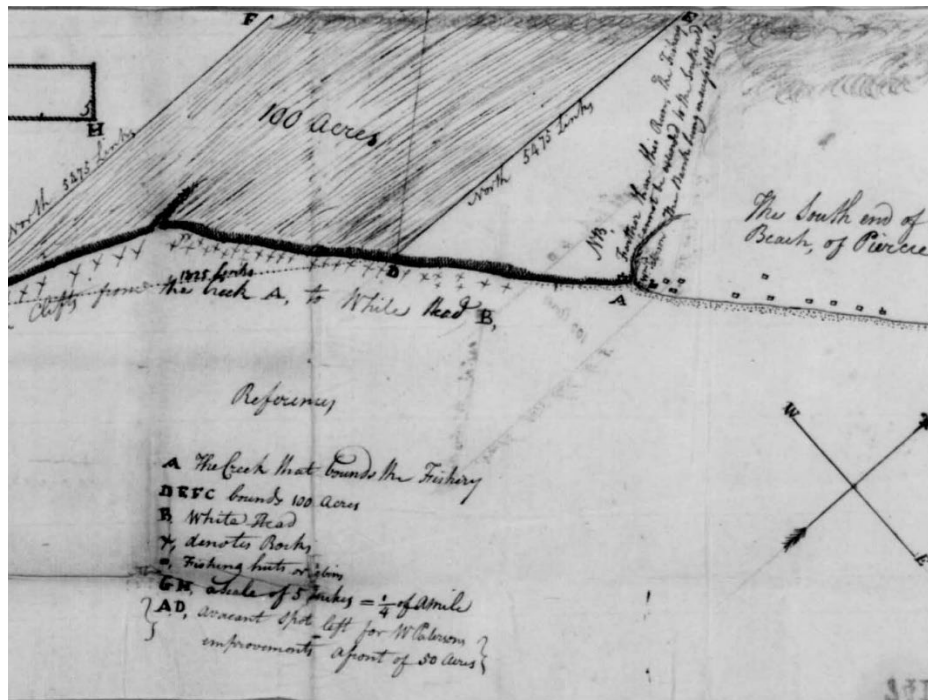 F
E
100 Acres
H
5
North 5475 Links
North 5475 Links
NB, Further than this River the Fishery
cannot be extended to the Southward
the Beach being
The South end of
Beach, of Pierce
D
1825 Links
Clifts from the Creek A, to White Head B,
A
W
E
References
A The Creek that bounds the Fishery
DEFC bounds 100 Acres
B, White Head
+, denotes Rocks
Fishing huts or
GH, a Scale of 5 = 1/4 of a Mile
AD, a vacant Spot left for Mr Paterson
improvements a front of 50 Acres